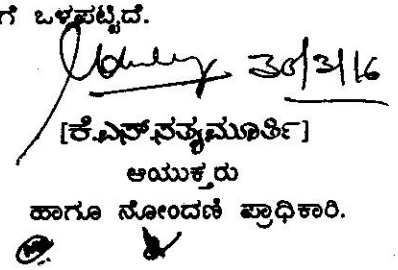 ಗೆ ಒಳಪಟ್ಟಿದೆ.
30/3/16
[ಕೆ.ಎಸ್.ಸತ್ಯಮೂರ್ತಿ]
ಆಯುಕ್ತರು
ಹಾಗೂ ನೋಂದಣಿ ಪ್ರಾಧಿಕಾರಿ.